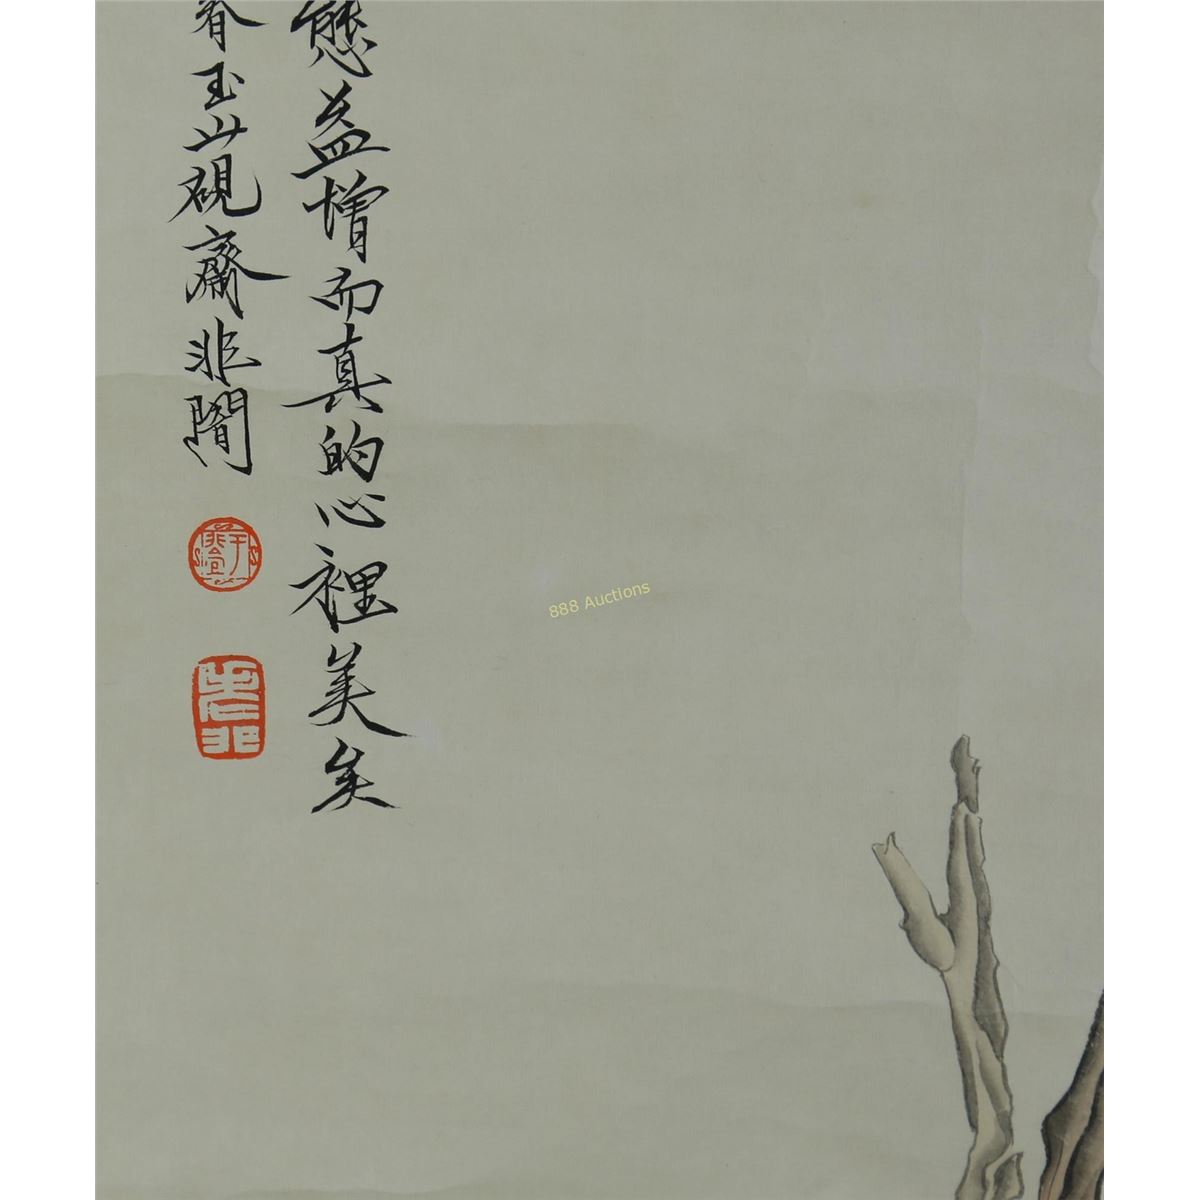 態益增而真的心裡美矣
春玉山硯齋非闇
888 Auctions